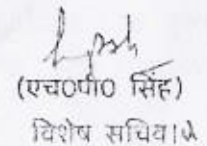 (एच०पी० सिंह)
विशेष सचिव।